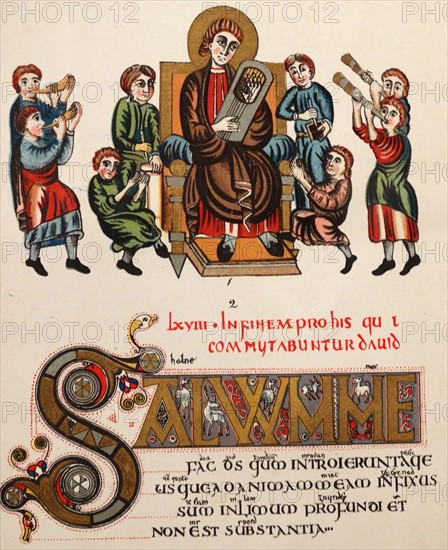 2
LXVIII · IN FINEM PRO HIS QUI
COMMUTABUNTUR DAUID
halne mec
SALUUM ME
doa god
FAC DS QUM INTROIERUNT AQE
USQUE AD ANIMAM MEAM INFIXUS
SUM IN LIMUM PROFUNDI ET
NON EST SUBSTANTIA
PHOTO12